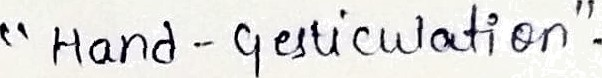 "Hand - Gesticulation".